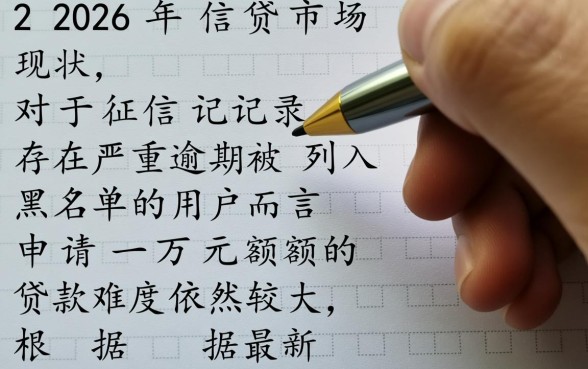 2 2026 年 信贷市场
现状，
对于征信 记记录
存在严重逾期被 列入
黑名单的用户而言
申请 一万 元额额的
贷款难度依然较大，
根 据 据最新